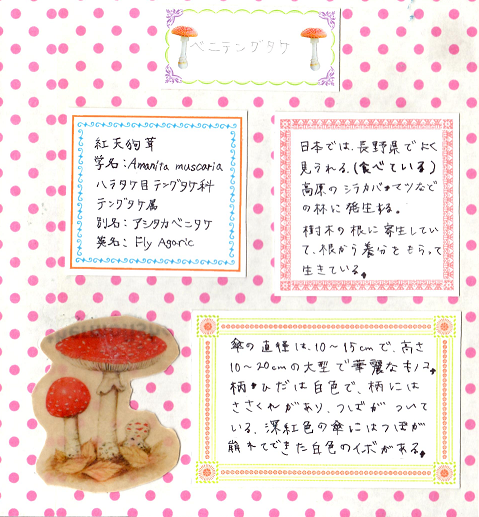 ベニテングタケ
紅天狗茸
学名：Amanita muscaria
ハラタケ目テングタケ科
テングタケ属
別名：アシタカベニタケ
英名：Fly Agaric
日本では、長野県でよく
見られる。(食べている)
高原のシラカバやマツなど
の林に発生する。
樹木の根に寄生してい
て、根から養分をもらって
生きている。
傘の直径は、10～15cmで、高さ
10～20cmの大型で華麗なキノコ。
柄やひだは白色で、柄には
ささくれがあり、つばがついて
いる。深紅色の傘にはつぼが
崩れてできた白色のイボがある。